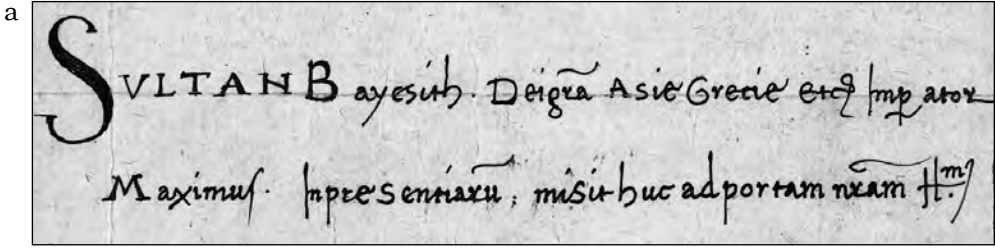 a
SVLTAN Bayesith. Dei gr̃a Asie Grecie etcꝫ Imꝑator
Maximus. Inpresentiarũ, misit huc ad portam nr̃am